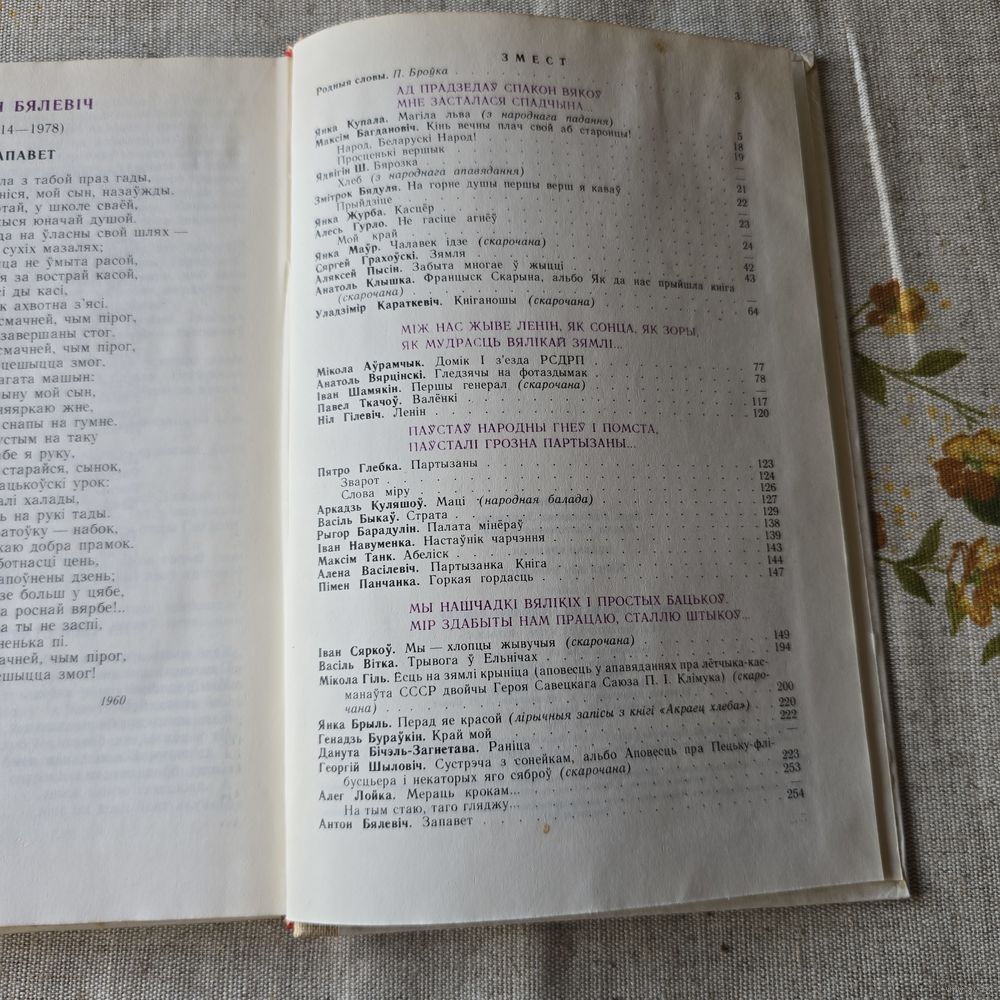 БЯЛЕВІЧ
14—1978)
АПАВЕТ
ла з табой праз гады,
ніся, мой сын, назаўжды.
тай, у школе сваёй,
ыся юначай душой.
да на ўласны свой шлях —
сухіх мазалях;
ца не ўмыта расой,
я за вострай касой,
сі ды касі,
к ахвотна з'ясі.
смачней, чым пірог,
завершаны стог.
смачней, чым пірог,
цешыцца змог.
агата машын:
ыну мой сын,
няяркаю жне,
снапы на гумне.
устым на таку
абе я руку,
старайся, сынок,
ацькоўскі урок:
алі халады,
ь на рукі тады.
атоўку — набок,
хаю добра прамок.
ботнасці цень,
апоўнены дзень;
зе больш у цябе,
а роснай вярбе!..
а ты не заспі,
ненька пі.
ачней, чым пірог,
ешыцца змог!
1960
ЗМЕСТ
Родныя словы. П. Броўка 3
АД ПРАДЗЕДАЎ СПАКОН ВЯКОЎ
МНЕ ЗАСТАЛАСЯ СПАДЧЫНА...
Янка Купала. Магіла льва (з народнага падання) 5
Максім Багдановіч. Кінь вечны плач свой аб старонцы! 18
Народ, Беларускі Народ! 19
Просценькі вершык —
Ядвігін Ш. Бярозка —
Хлеб (з народнага апавядання) 21
Змітрок Бядуля. На горне душы першы верш я каваў 22
Прыйдзіце —
Янка Журба. Касцёр 23
Алесь Гурло. Не гасіце агнёў —
Мой край 24
Янка Маўр. Чалавек ідзе (скарочана) —
Сяргей Грахоўскі. Зямля 42
Аляксей Пысін. Забыта многае ў жыцці 43
Анатоль Клышка. Францыск Скарына, альбо Як да нас прыйшла кніга
(скарочана) —
Уладзімір Караткевіч. Кніганошы (скарочана) 64
МІЖ НАС ЖЫВЕ ЛЕНІН, ЯК СОНЦА, ЯК ЗОРЫ,
ЯК МУДРАСЦЬ ВЯЛІКАЙ ЗЯМЛІ...
Мікола Аўрамчык. Домік I з'езда РСДРП 77
Анатоль Вярцінскі. Гледзячы на фотаздымак 78
Іван Шамякін. Першы генерал (скарочана) —
Павел Ткачоў. Валёнкі 117
Ніл Гілевіч. Ленін 120
ПАЎСТАЎ НАРОДНЫ ГНЕЎ І ПОМСТА,
ПАЎСТАЛІ ГРОЗНА ПАРТЫЗАНЫ...
Пятро Глебка. Партызаны 123
Зварот 124
Слова міру 126
Аркадзь Куляшоў. Маці (народная балада) 127
Васіль Быкаў. Страта 129
Рыгор Барадулін. Палата мінёраў 138
Іван Навуменка. Настаўнік чарчэння 139
Максім Танк. Абеліск 143
Алена Васілевіч. Партызанка Кніга 144
Пімен Панчанка. Горкая гордасць 147
МЫ НАШЧАДКІ ВЯЛІКІХ І ПРОСТЫХ БАЦЬКОЎ.
МІР ЗДАБЫТЫ НАМ ПРАЦАЮ, СТАЛЛЮ ШТЫКОЎ...
Іван Сяркоў. Мы — хлопцы жывучыя (скарочана) 149
Васіль Вітка. Трывога ў Ельнічах 194
Мікола Гіль. Ёсць на зямлі крыніца (аповесць у апавяданнях пра лётчыка-кас-
манаўта СССР двойчы Героя Савецкага Саюза П. І. Клімука) (скаро-
чана) 200
Янка Брыль. Перад яе красой (лірычныя запісы з кнігі «Акраец хлеба») 220
Генадзь Бураўкін. Край мой 222
Данута Бічэль-Загнетава. Раніца —
Георгій Шыловіч. Сустрэча з сонейкам, альбо Аповесць пра Пецьку-флі-
бусцьера і некаторых яго сяброў (скарочана) 223
Алег Лойка. Мераць крокам... 253
На тым стаю, таго гляджу... —
Антон Бялевіч. Запавет 254